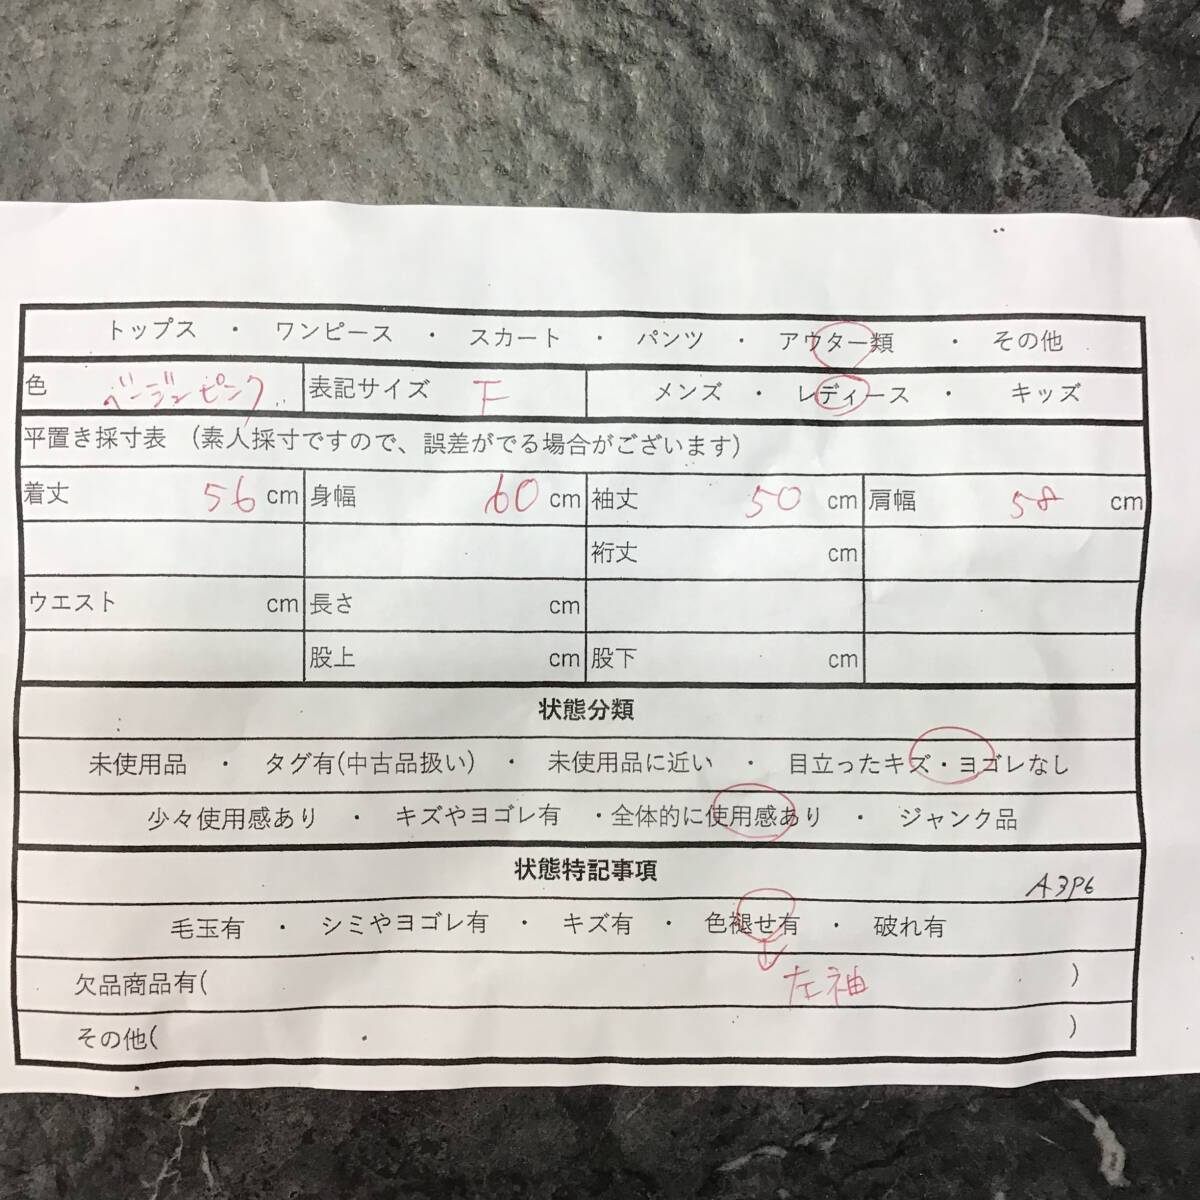 トップス ・ ワンピース ・ スカート ・ パンツ ・ アウター類 ・ その他
色 ベージュピンク 表記サイズ F メンズ ・ レディース ・ キッズ
平置き採寸表 (素人採寸ですので、誤差がでる場合がございます)
着丈 56 cm 身幅 60 cm 袖丈 50 cm 肩幅 58 cm
裄丈 cm
ウエスト cm 長さ cm
股上 cm 股下 cm
状態分類
未使用品 ・ タグ有(中古品扱い) ・ 未使用品に近い ・ 目立ったキズ・ヨゴレなし
少々使用感あり ・ キズやヨゴレ有 ・全体的に使用感あり ・ ジャンク品
状態特記事項
A3P6
毛玉有 ・ シミやヨゴレ有 ・ キズ有 ・ 色褪せ有 ・ 破れ有
左袖
欠品商品有( )
その他( )